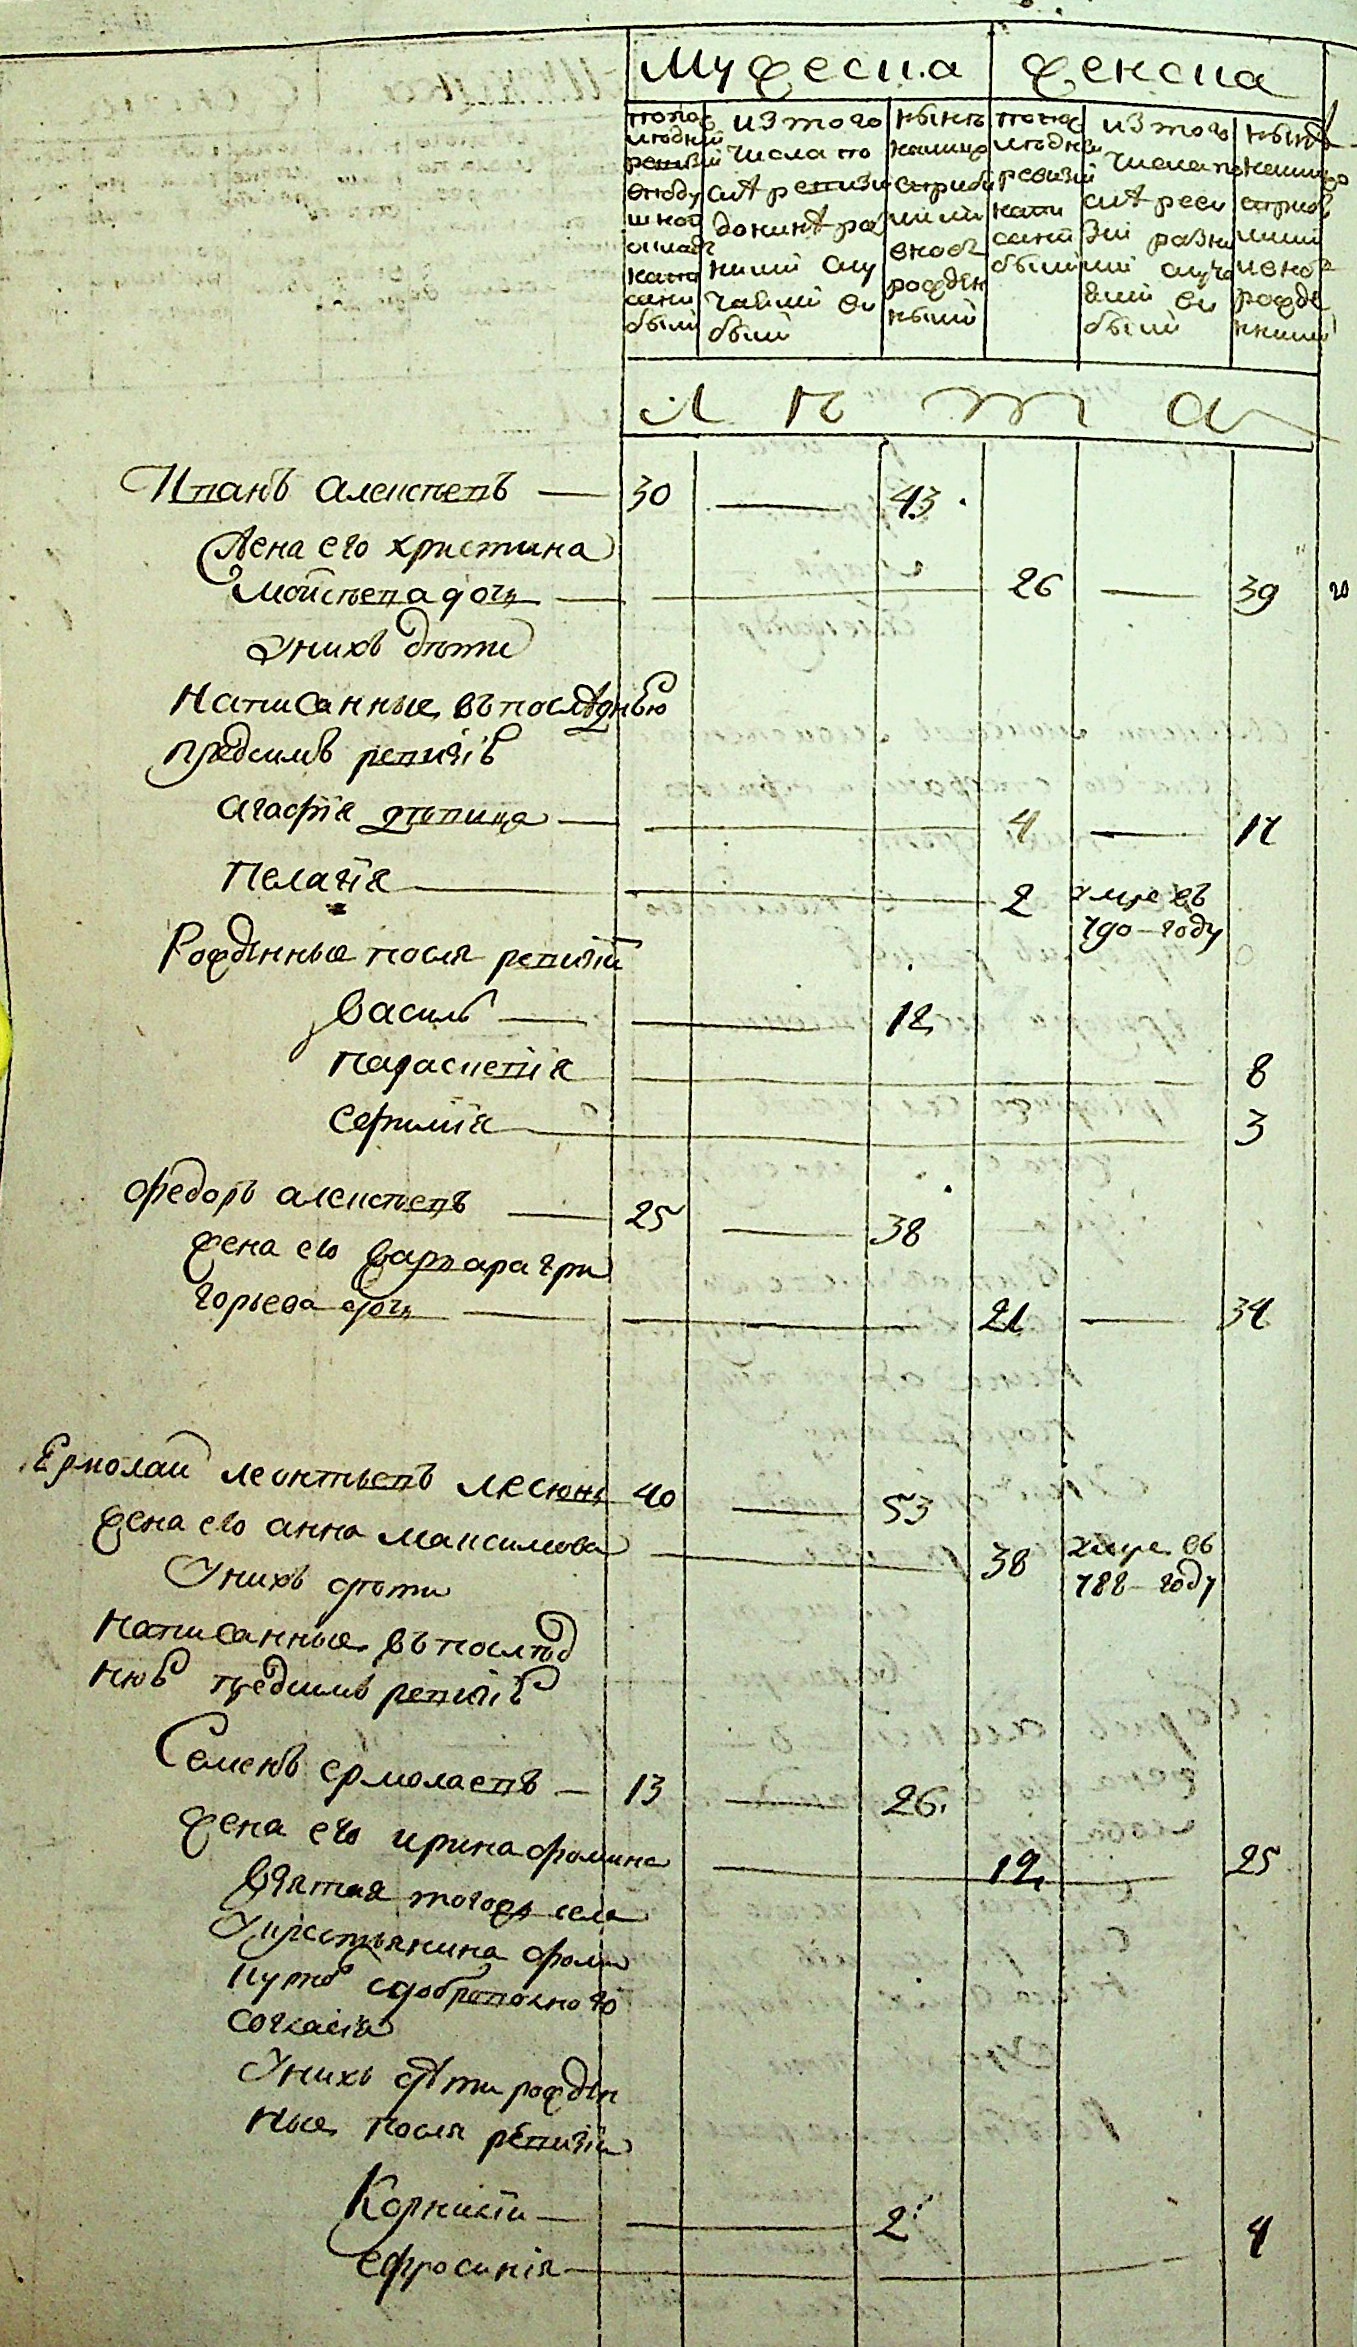 Мужеска женска
по пос
лѣдней
ревизии
в поду
шной
оклад
напи
саны
были
из того
числа по
слѣ ревизии
до нынѣ ра
зными слу
чаями вы
было
нынѣ
на лицо
с прибы
лыми
вновь
рожден
ными
по пос
лѣдней
ревизии
напи
саны
были
из того
числа по
слѣ реви
зии разны
ми случа
ями вы
было
нынѣ
на лицо
с прибы
лыми
и вновь
рожде
нными
лѣта
Иванъ алексѣевъ 30 43
жена его христина
моисѣева дочь 26 39
Унихъ дѣти
написанные въ послѣднью
предсимъ ревизiю
агафiя дѣвица 4 17
Пелагiя 2 умре въ
790 году
Рожденные после ревизiи
Василь 12
параскевiя 8
Ефимiя 3
федоръ алексѣевъ 25 38
жена его варвара гри
горьева дочь 21 34
Ермолай леонтьевъ 40 53
жена его анна максимова 38 умре въ
788 году
Унихъ дѣти
написанные въ послѣд
нюю предсимъ ревизiю
Семенъ ермолаевъ 13 26
жена его ирина фомина 12 25
взятая тогожъ села
У крестьянина фомы
с добровольного
согласiя
Унихъ дѣти рожден
ные после ревизiи
Корнилiи 2
ефросинiя 4